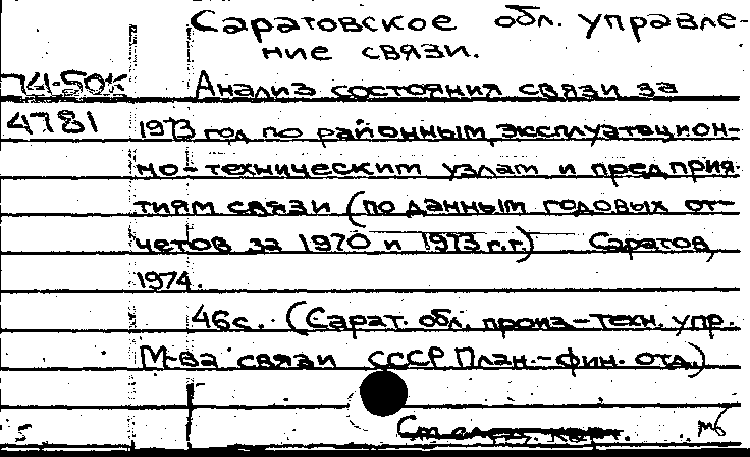 Саратовское обл. управле-
ние связи.
74-50к Анализ состояния связи за
4781 1973 год по районным, эксплуатацион-
но-техническим узлам и предприя-
тиям связи (по данным годовых от-
четов за 1970 и 1973 г.г.) Саратов,
1974.
46с. (Сарат. обл. произ-техн. упр.
М-ва связи СССР План.-фин. отд.)
5 мб